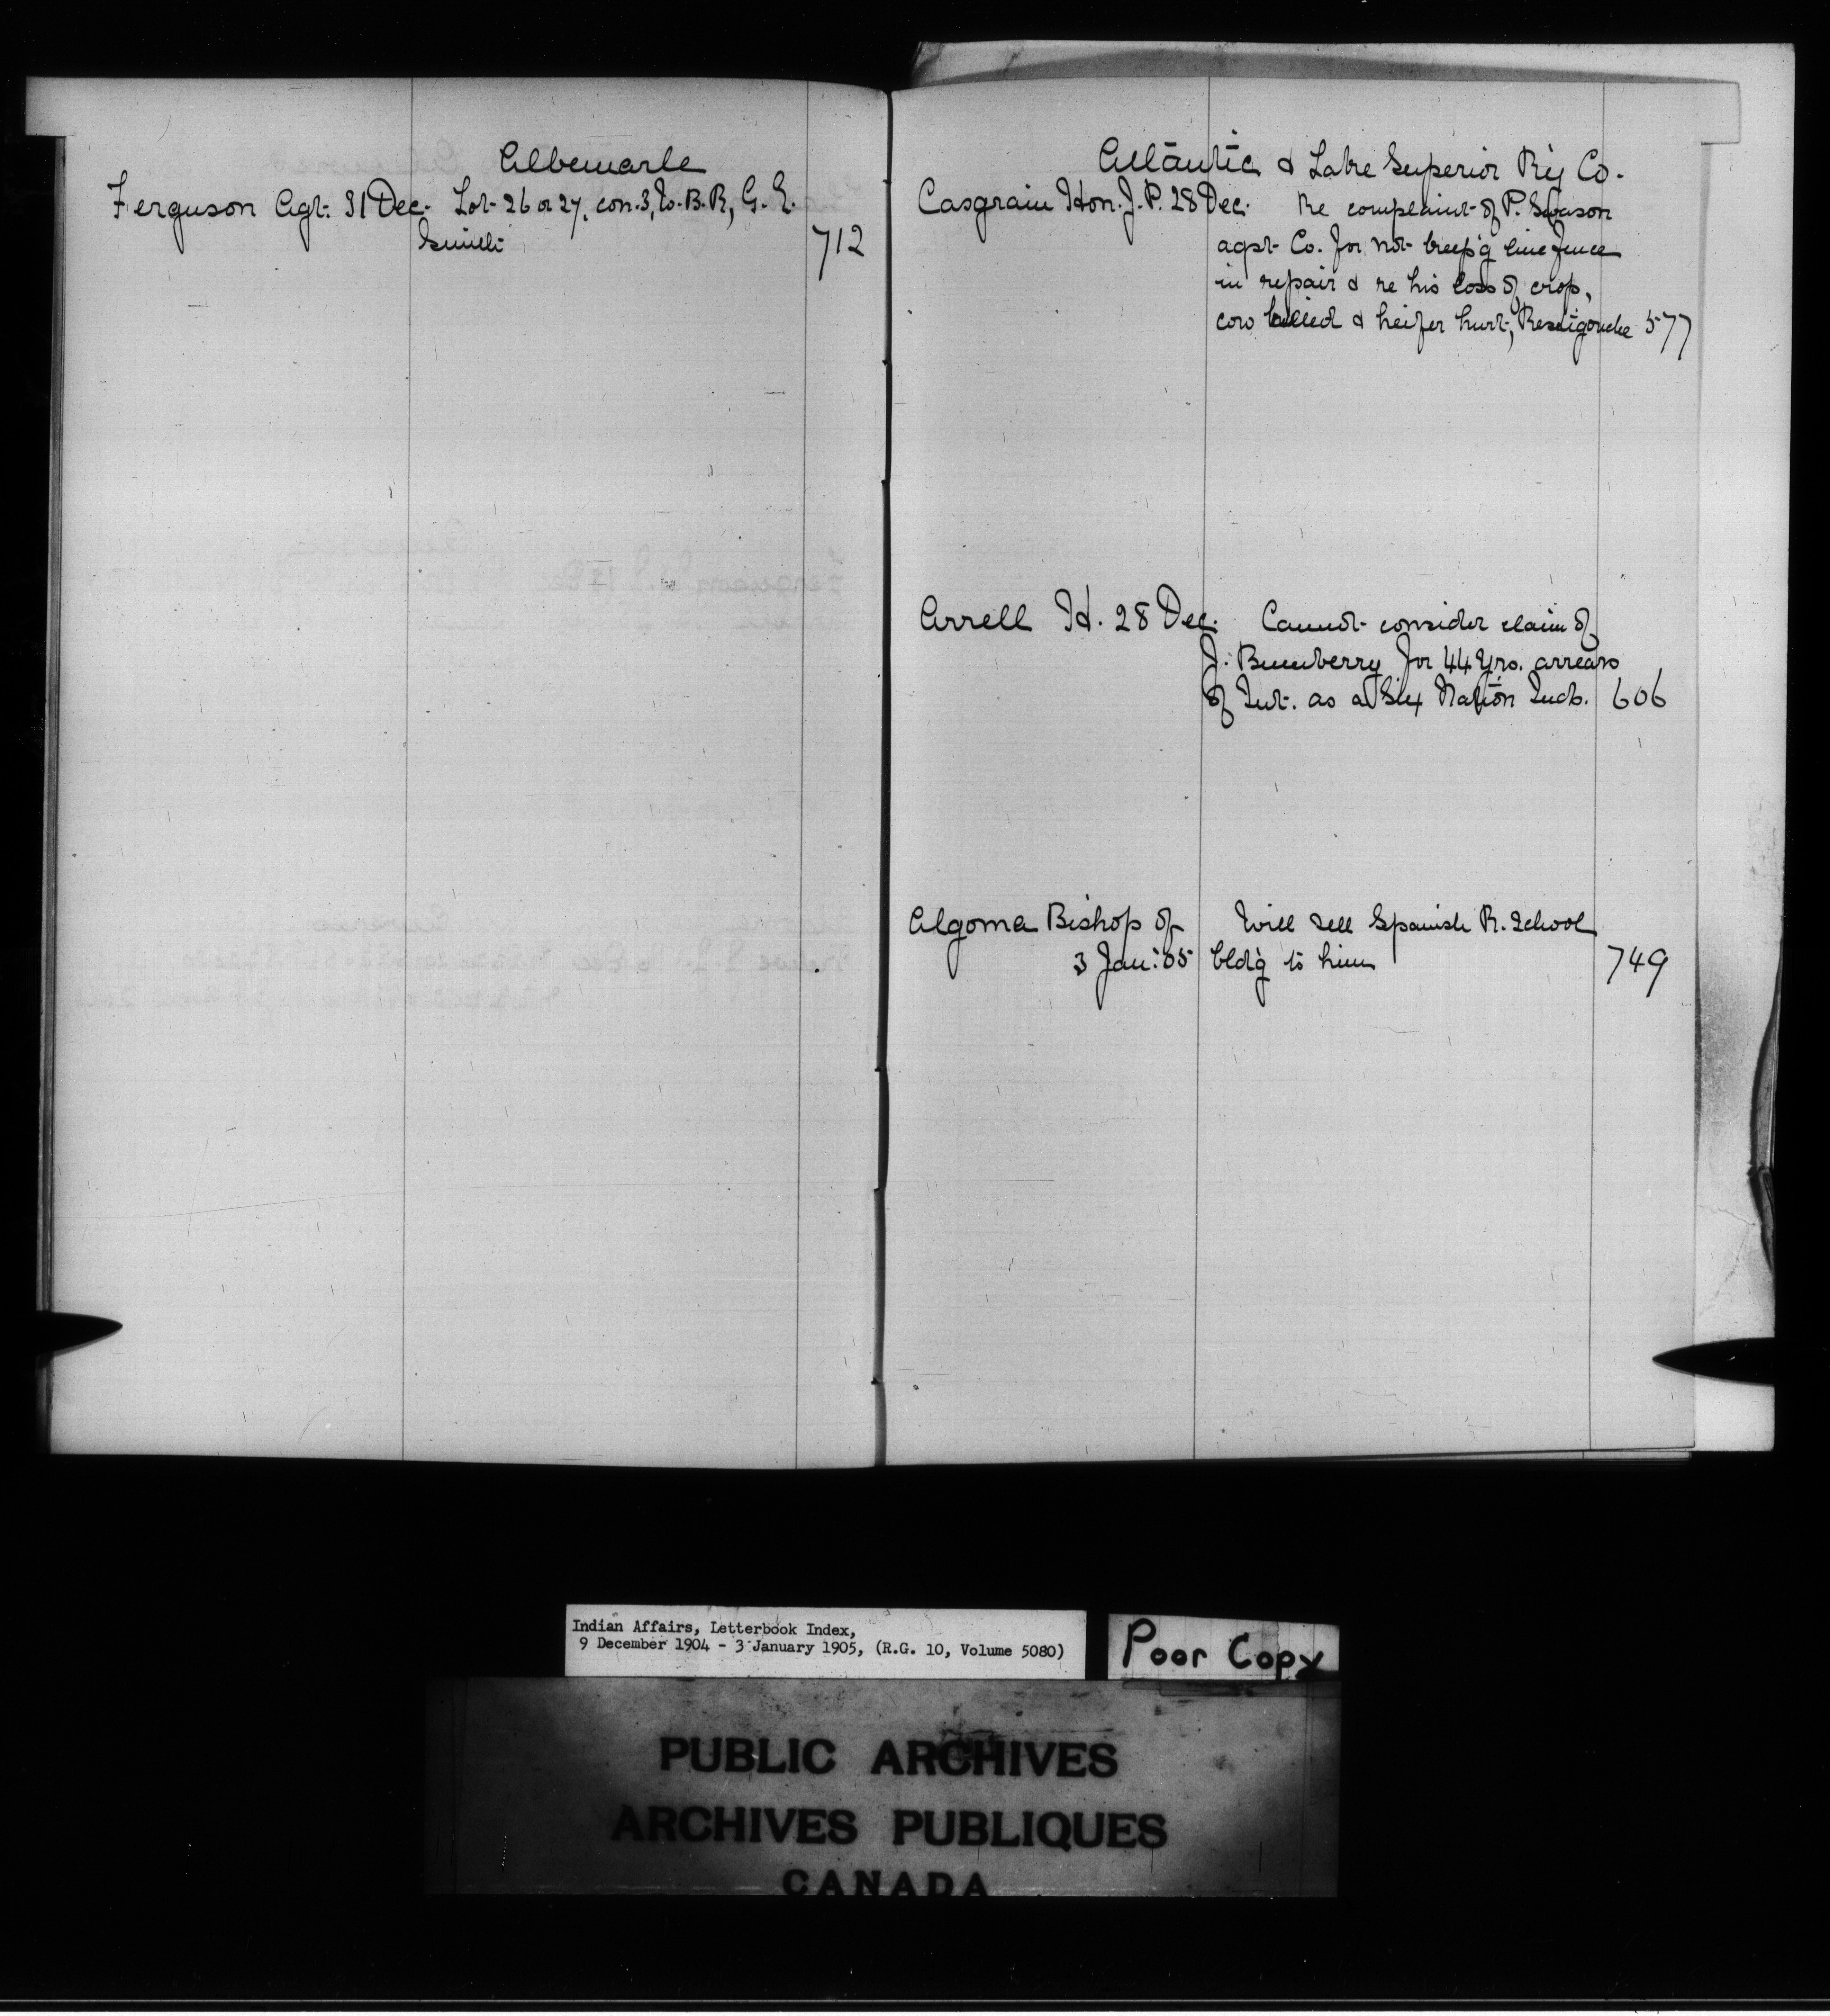 Albemarle
Ferguson Agt. 31 Dec. Lot 26 or 27, con. 3, E. B. R, G. E.
Smith 712
Atlantic & Lake Superior Ry Co.
Casgrain Hon. J. P. 28 Dec. Re complaint of P. Swason
agst Co. for not keep'g line fence
in repair & re his loss of crop,
cow killed & heifer hurt, Restigouche 577
Arrell H. 28 Dec. Cannot consider claim of
J. Bumberry for 44 yrs. arrears
of Int. as a Six Nation Ind. 606
Algoma Bishop of Will sell Spanish R. School
3 Jan: 05 bld'g to him 749
Indian Affairs, Letterbook Index,
9 December 1904 - 3 January 1905, (R.G. 10, Volume 5080)
Poor Copy
PUBLIC ARCHIVES
ARCHIVES PUBLIQUES
CANADA